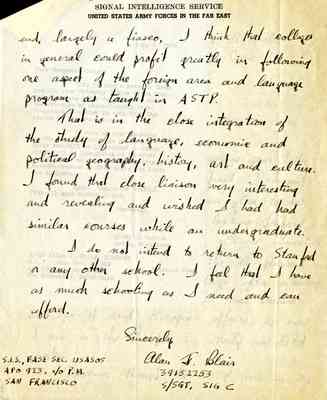 SIGNAL INTELLIGENCE SERVICE
UNITED STATES ARMY FORCES IN THE FAR EAST
and, largely a fiasco. I think that colleges
in general could profit greatly in following
one aspect of the foreign area and language
program as taught in ASTP.
That is in the close integration of
the study of language, economic and
political geography, history, art and culture.
I found that close liaison very interesting
and revealing and wished I had had
similar courses while an undergraduate.
I do not intend to return to Stanford
or any other school. I feel that I have
as much schooling as I need and can
afford.
Sincerely
Alan F. Blair
39152253
S/SGT, SIG C
S.I.S., BASE SEC. USASOS
APO 923, c/o P.M.
SAN FRANCISCO